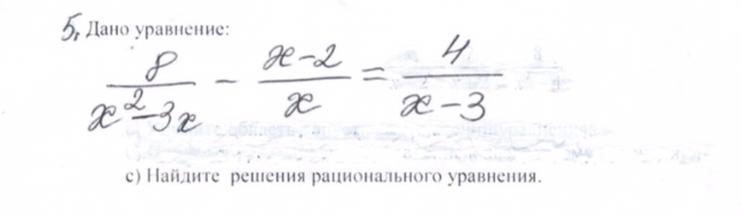 5. Дано уравнение:
8/(x²-3x) - (x-2)/x = 4/(x-3)
c) Найдите решения рационального уравнения.